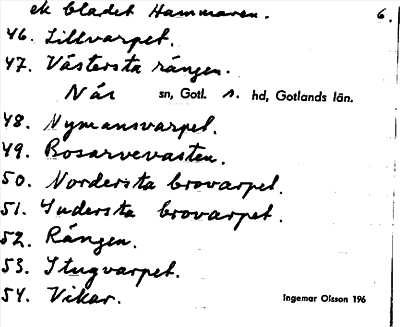 ek bladet Hammaren. 6.
46. Lillvarpet.
47. Västersta rången.
När sn, Gotl. s. hd, Gotlands län.
48. Nymansvarpet.
49. Bosarvevasten.
50. Nordersta brovarpet.
51. Sudersta brovarpet.
52. Rången.
53. Stugvarpet.
54. Vikar.
Ingemar Olsson 196